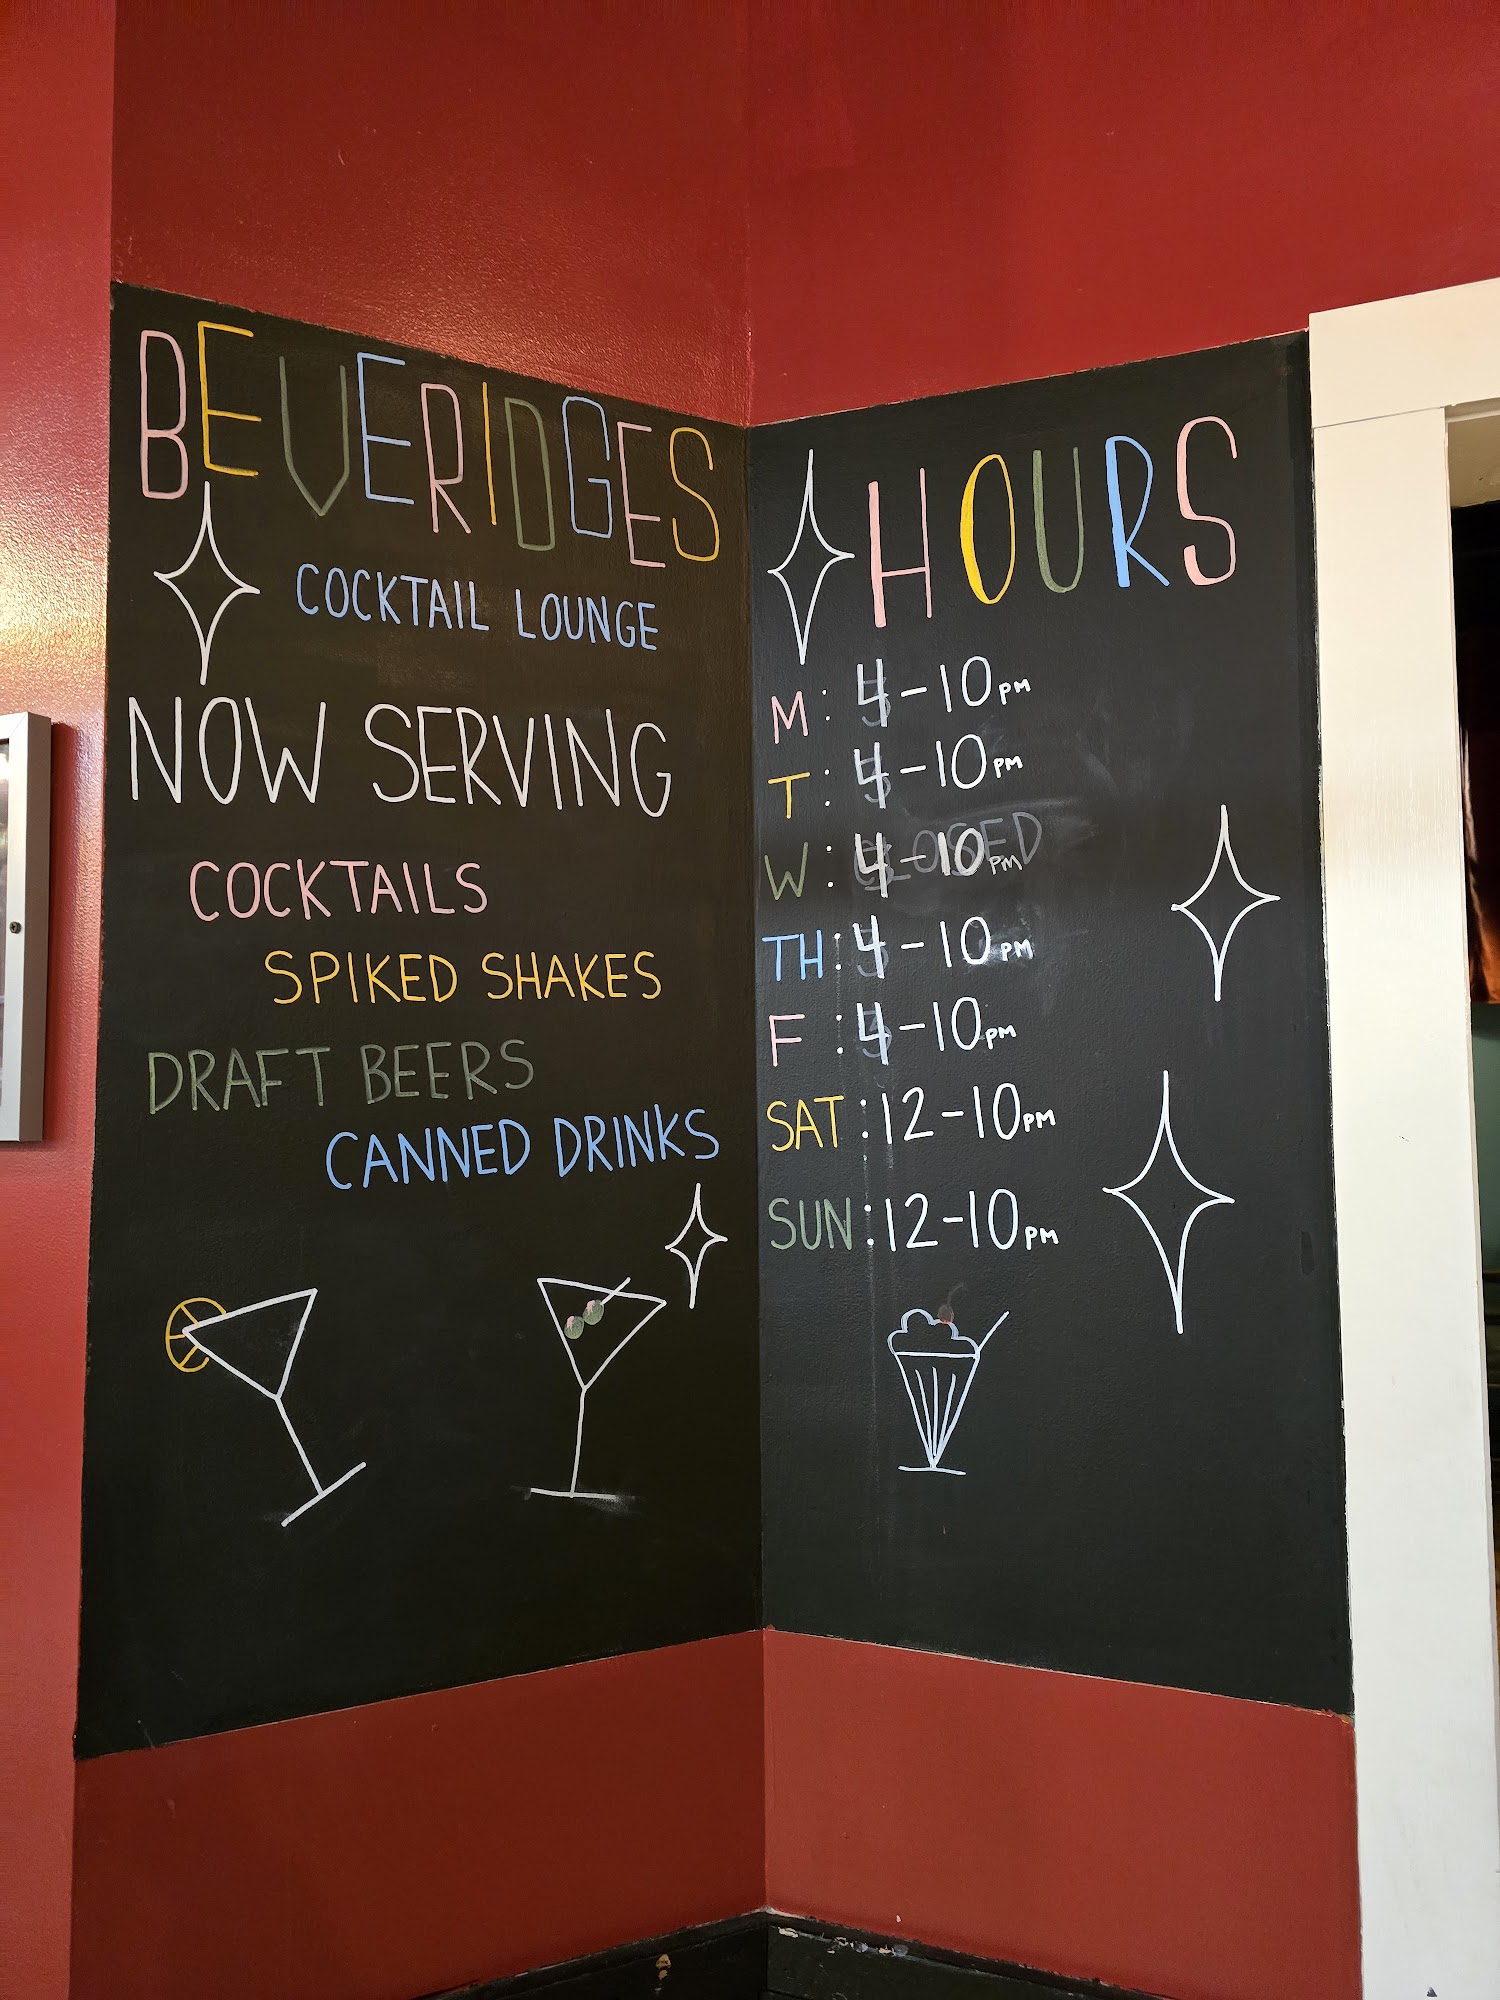 BEVERIDGES
COCKTAIL LOUNGE
NOW SERVING
COCKTAILS
SPIKED SHAKES
DRAFT BEERS
CANNED DRINKS
HOURS
M: 4-10PM
T: 4-10PM
W: 4-10PM
TH: 4-10PM
F: 4-10PM
SAT: 12-10PM
SUN: 12-10PM